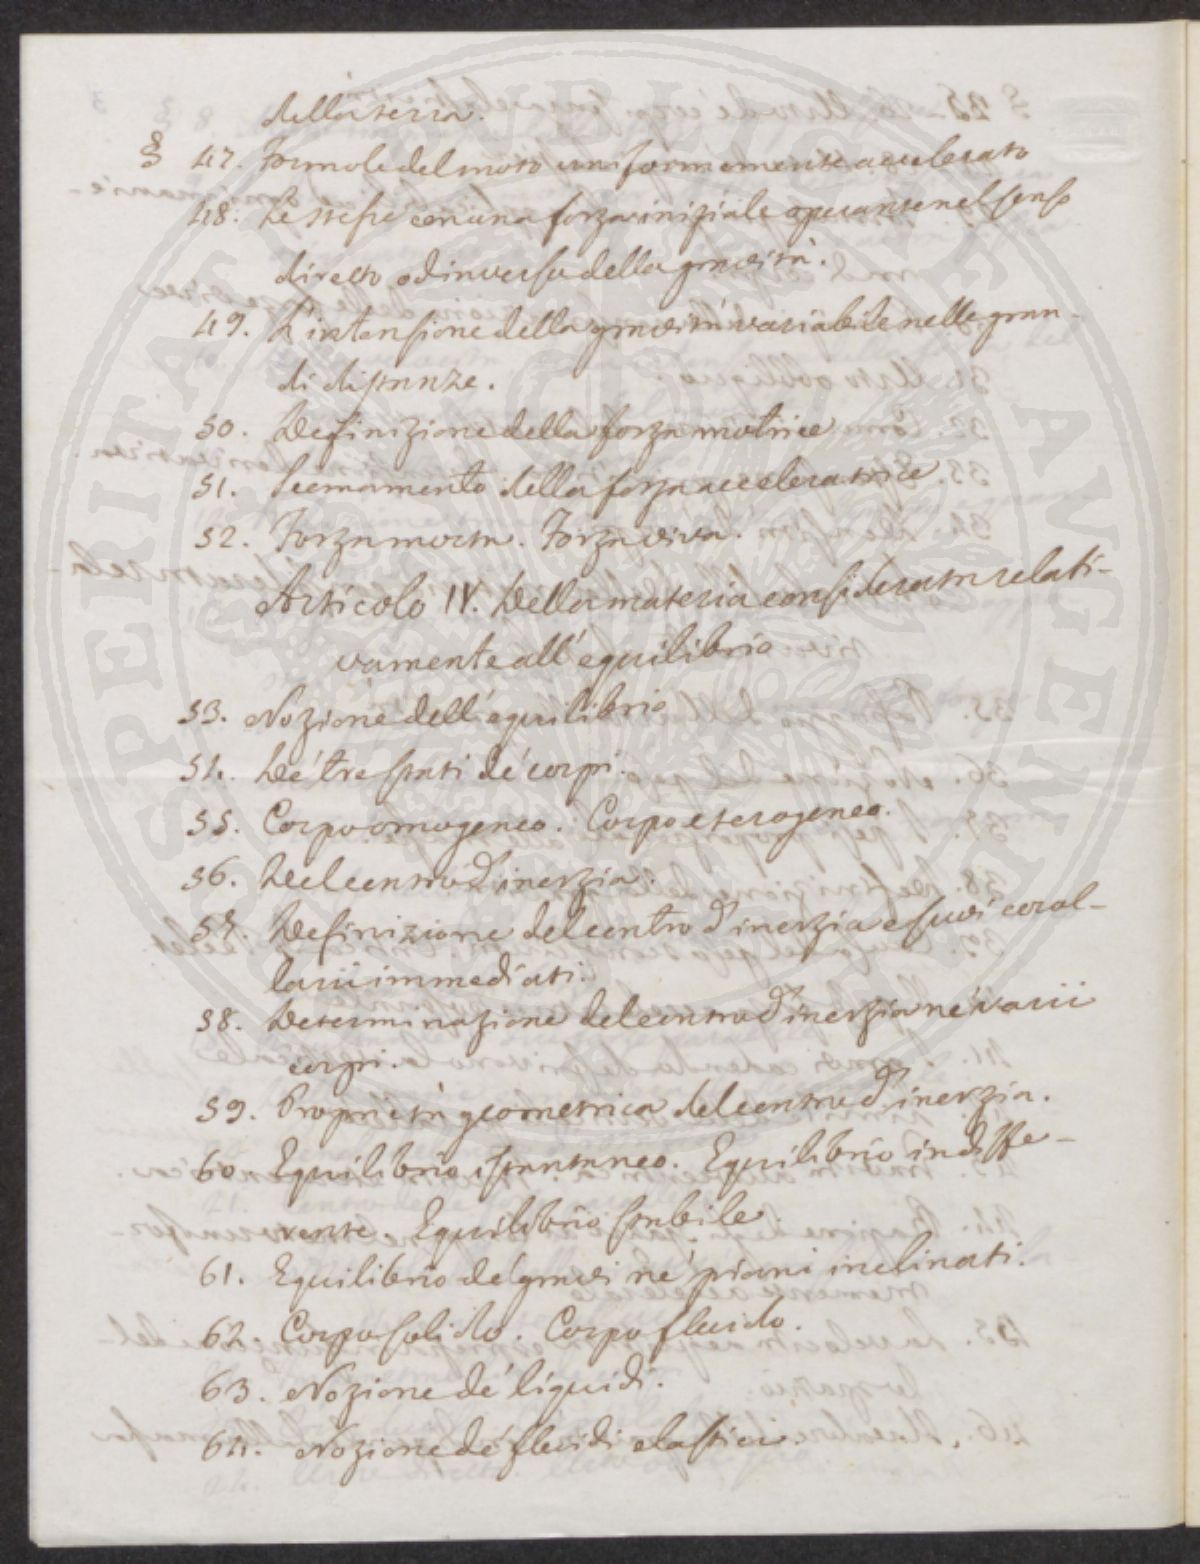 della terra.
§ 47. Formole del moto uniformemente accelerato
48. Le stesse con una forza iniziale operante nel senso
diretto od inverso della gravità.
49. L'intensione della gravità variabile nelle gran-
di distanze.
50. Definizione della forza motrice
51. Scemamento della forza acceleratrice.
52. Forza morta. Forza viva.
Articolo IV. Della materia considerata relati-
vamente all'equilibrio
53. Nozione dell'equilibrio
54. De' tre stati de' corpi.
55. Corpo omogeneo. Corpo eterogeneo.
56. Del centro d'inerzia.
57. Definizione del centro d'inerzia e suoi corol-
larii immediati.
58. Determinazione del centro d'inerzia ne' varii
corpi.
59. Proprietà geometrica del centro d'inerzia.
60. Equilibrio istantaneo. Equilibrio indiffe-
rente. Equilibrio stabile.
61. Equilibrio de' gravi ne' piani inclinati.
62. Corpo solido. Corpo fluido.
63. Nozione de' liquidi.
64. Nozione de' fluidi elastici.